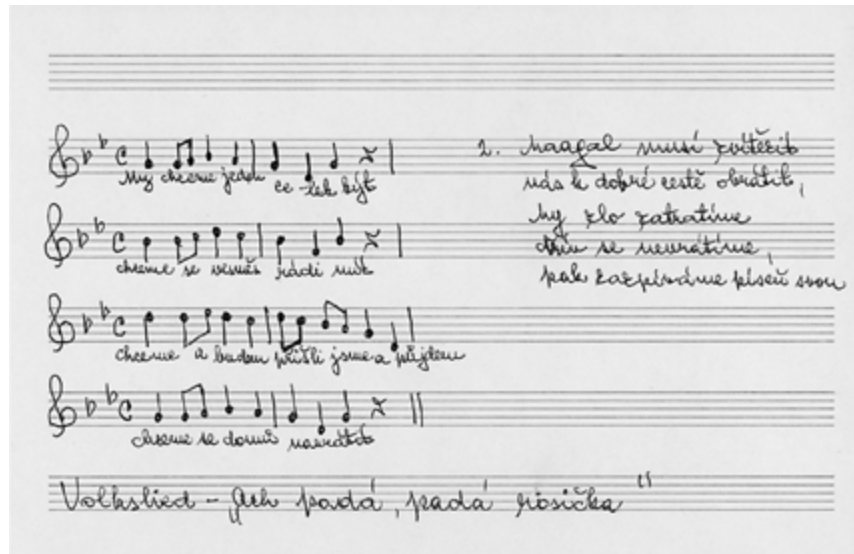 My chceme jeden ce-lek být
chceme se vesněs rádi mít
chceme a budem přišli jsme a půjdem
chceme se domů navrátit
2. Maagal musí zvítězit
nás k dobré cestě obrátit,
my zlo zatratíme
dřív se nevrátíme,
pak zazpíváme píseň svou
Volkslied - „Ach padá, padá rosička"